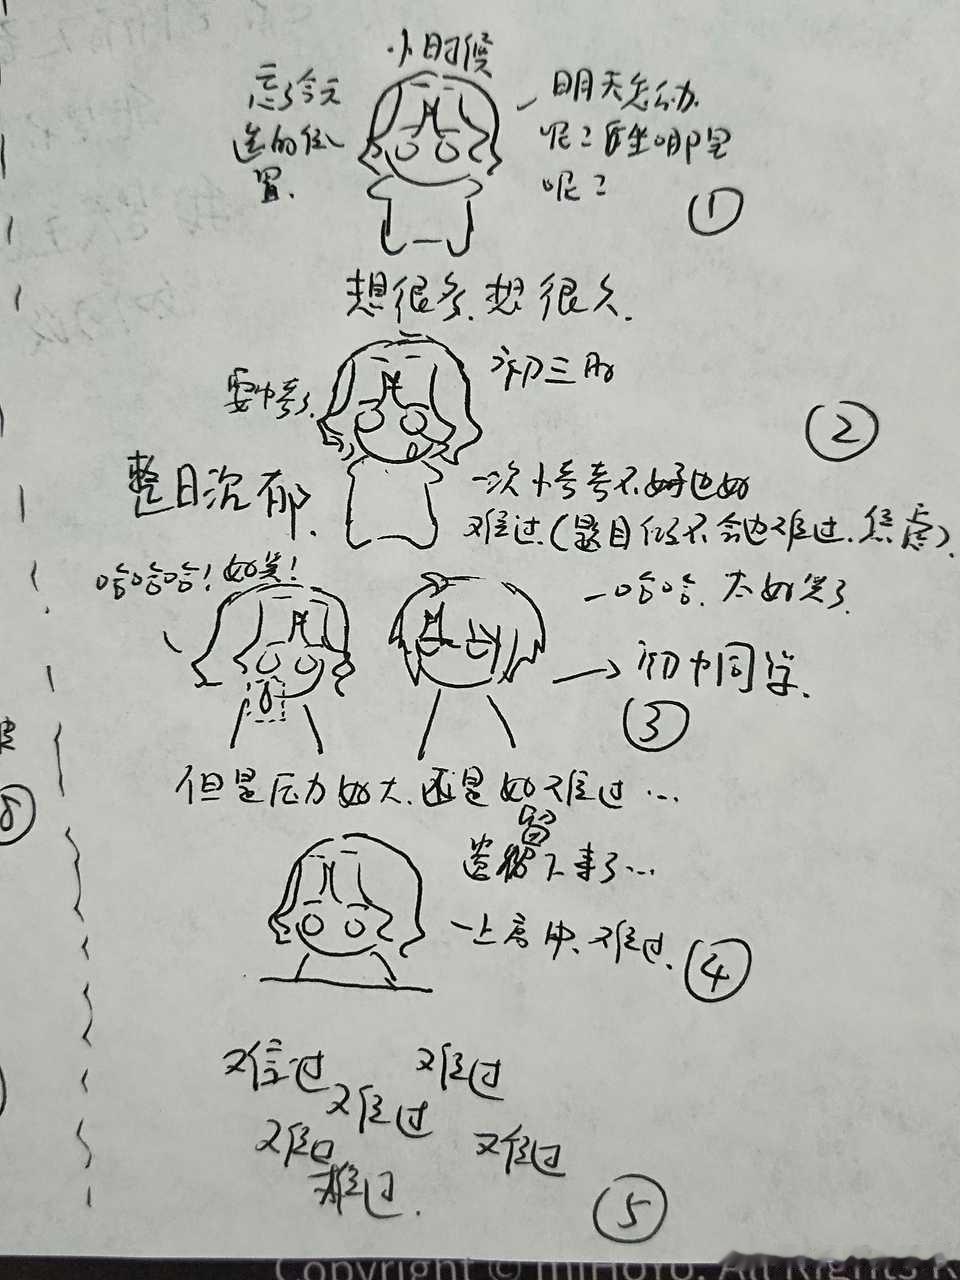 小时候
忘了今天
选的位
置.
明天怎么办
呢？座哪里
呢？
①
想很多.想很久.
初三时
要中考了.
②
整日沉郁.
一次小考考不好也好
难过.(题目做不会也难过.焦虑).
哈哈哈！好笑！
哈哈.太好笑了.
初中同学.
③
但是压力好大.还是好难过…
留
遗下来了…
上高中.难过.
④
难过
难过
难过
难过
难过
难过.
⑤
⑧
Copyright © miHoYo. All Rights R